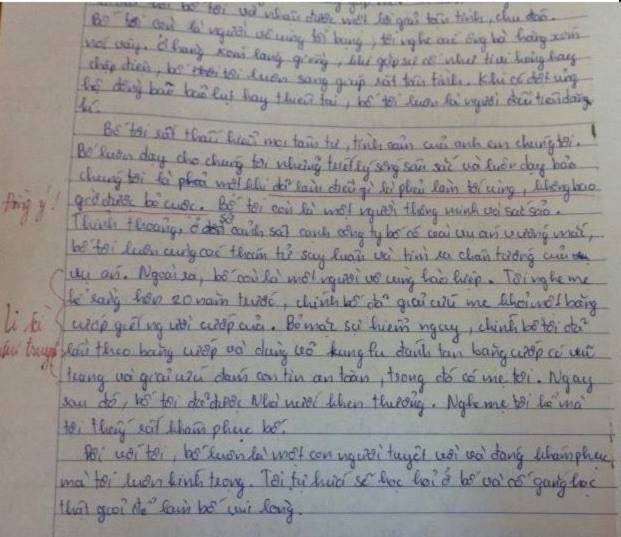 bố tôi và nhận được một lời giải tận tình, chu đáo.
Bố tôi còn là người vô cùng tốt bụng, tôi nghe các ông bà hàng xóm
nói vậy. Ở hàng xóm láng giềng, khi gặp sự cố như tivi hỏng hay
chập điện, bố tôi luôn sang giúp rất tận tình. Khi có đợt ủng
hộ đồng bào bão lụt hay thiên tai, bố tôi luôn là người đầu tiên đăng
kí.
Bố tôi rất thấu hiểu mọi tâm tư, tình cảm của anh em chúng tôi.
Bố luôn dạy cho chúng tôi những triết lý sống sâu sắc và luôn dạy bảo
chúng tôi là một khi đã làm điều gì là phải làm tới cùng, không bao
Đồng ý!
giờ được bỏ cuộc. Bố tôi còn là một người thông minh và sắc sảo.
Thỉnh thoảng, ở sở cảnh sát cạnh công ty bố có vài vụ án vướng mắc,
bố tôi luôn cùng các thám tử suy luận và tìm ra chân tướng của
vụ án. Ngoài ra, bố còn là một người vô cùng hào hiệp. Tôi nghe mẹ
kể rằng hơn 20 năm trước, chính bố đã giải cứu mẹ khỏi một băng
cướp giết người cướp của. Bỏ mặc sự hiểm nguy, chính bố tôi đã
Li kì
như truyện
lần theo băng cướp và dùng võ kungfu đánh tan băng cướp có vũ
trang và giải cứu đám con tin an toàn, trong đó có mẹ tôi. Ngay
sau đó, bố tôi đã được Nhà nước khen thưởng. Nghe mẹ tôi kể mà
tôi thấy rất khâm phục bố.
Đối với tôi, bố luôn là một con người tuyệt vời và đáng khâm phục
mà tôi luôn kính trọng. Tôi tự hứa sẽ học hỏi ở bố và cố gắng học
thật giỏi để làm bố vui lòng.